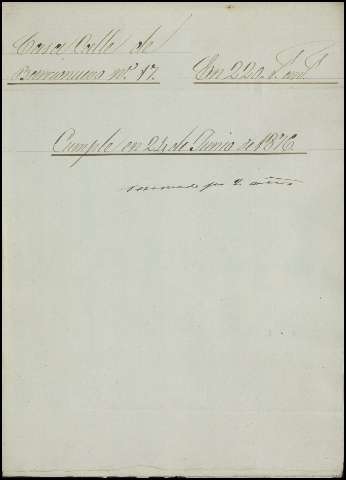 Casa Calle de
Barrionuevo nº 17. En 220. F. an.s
Cumple en 24 de Junio de 1876
renovado por 2 años